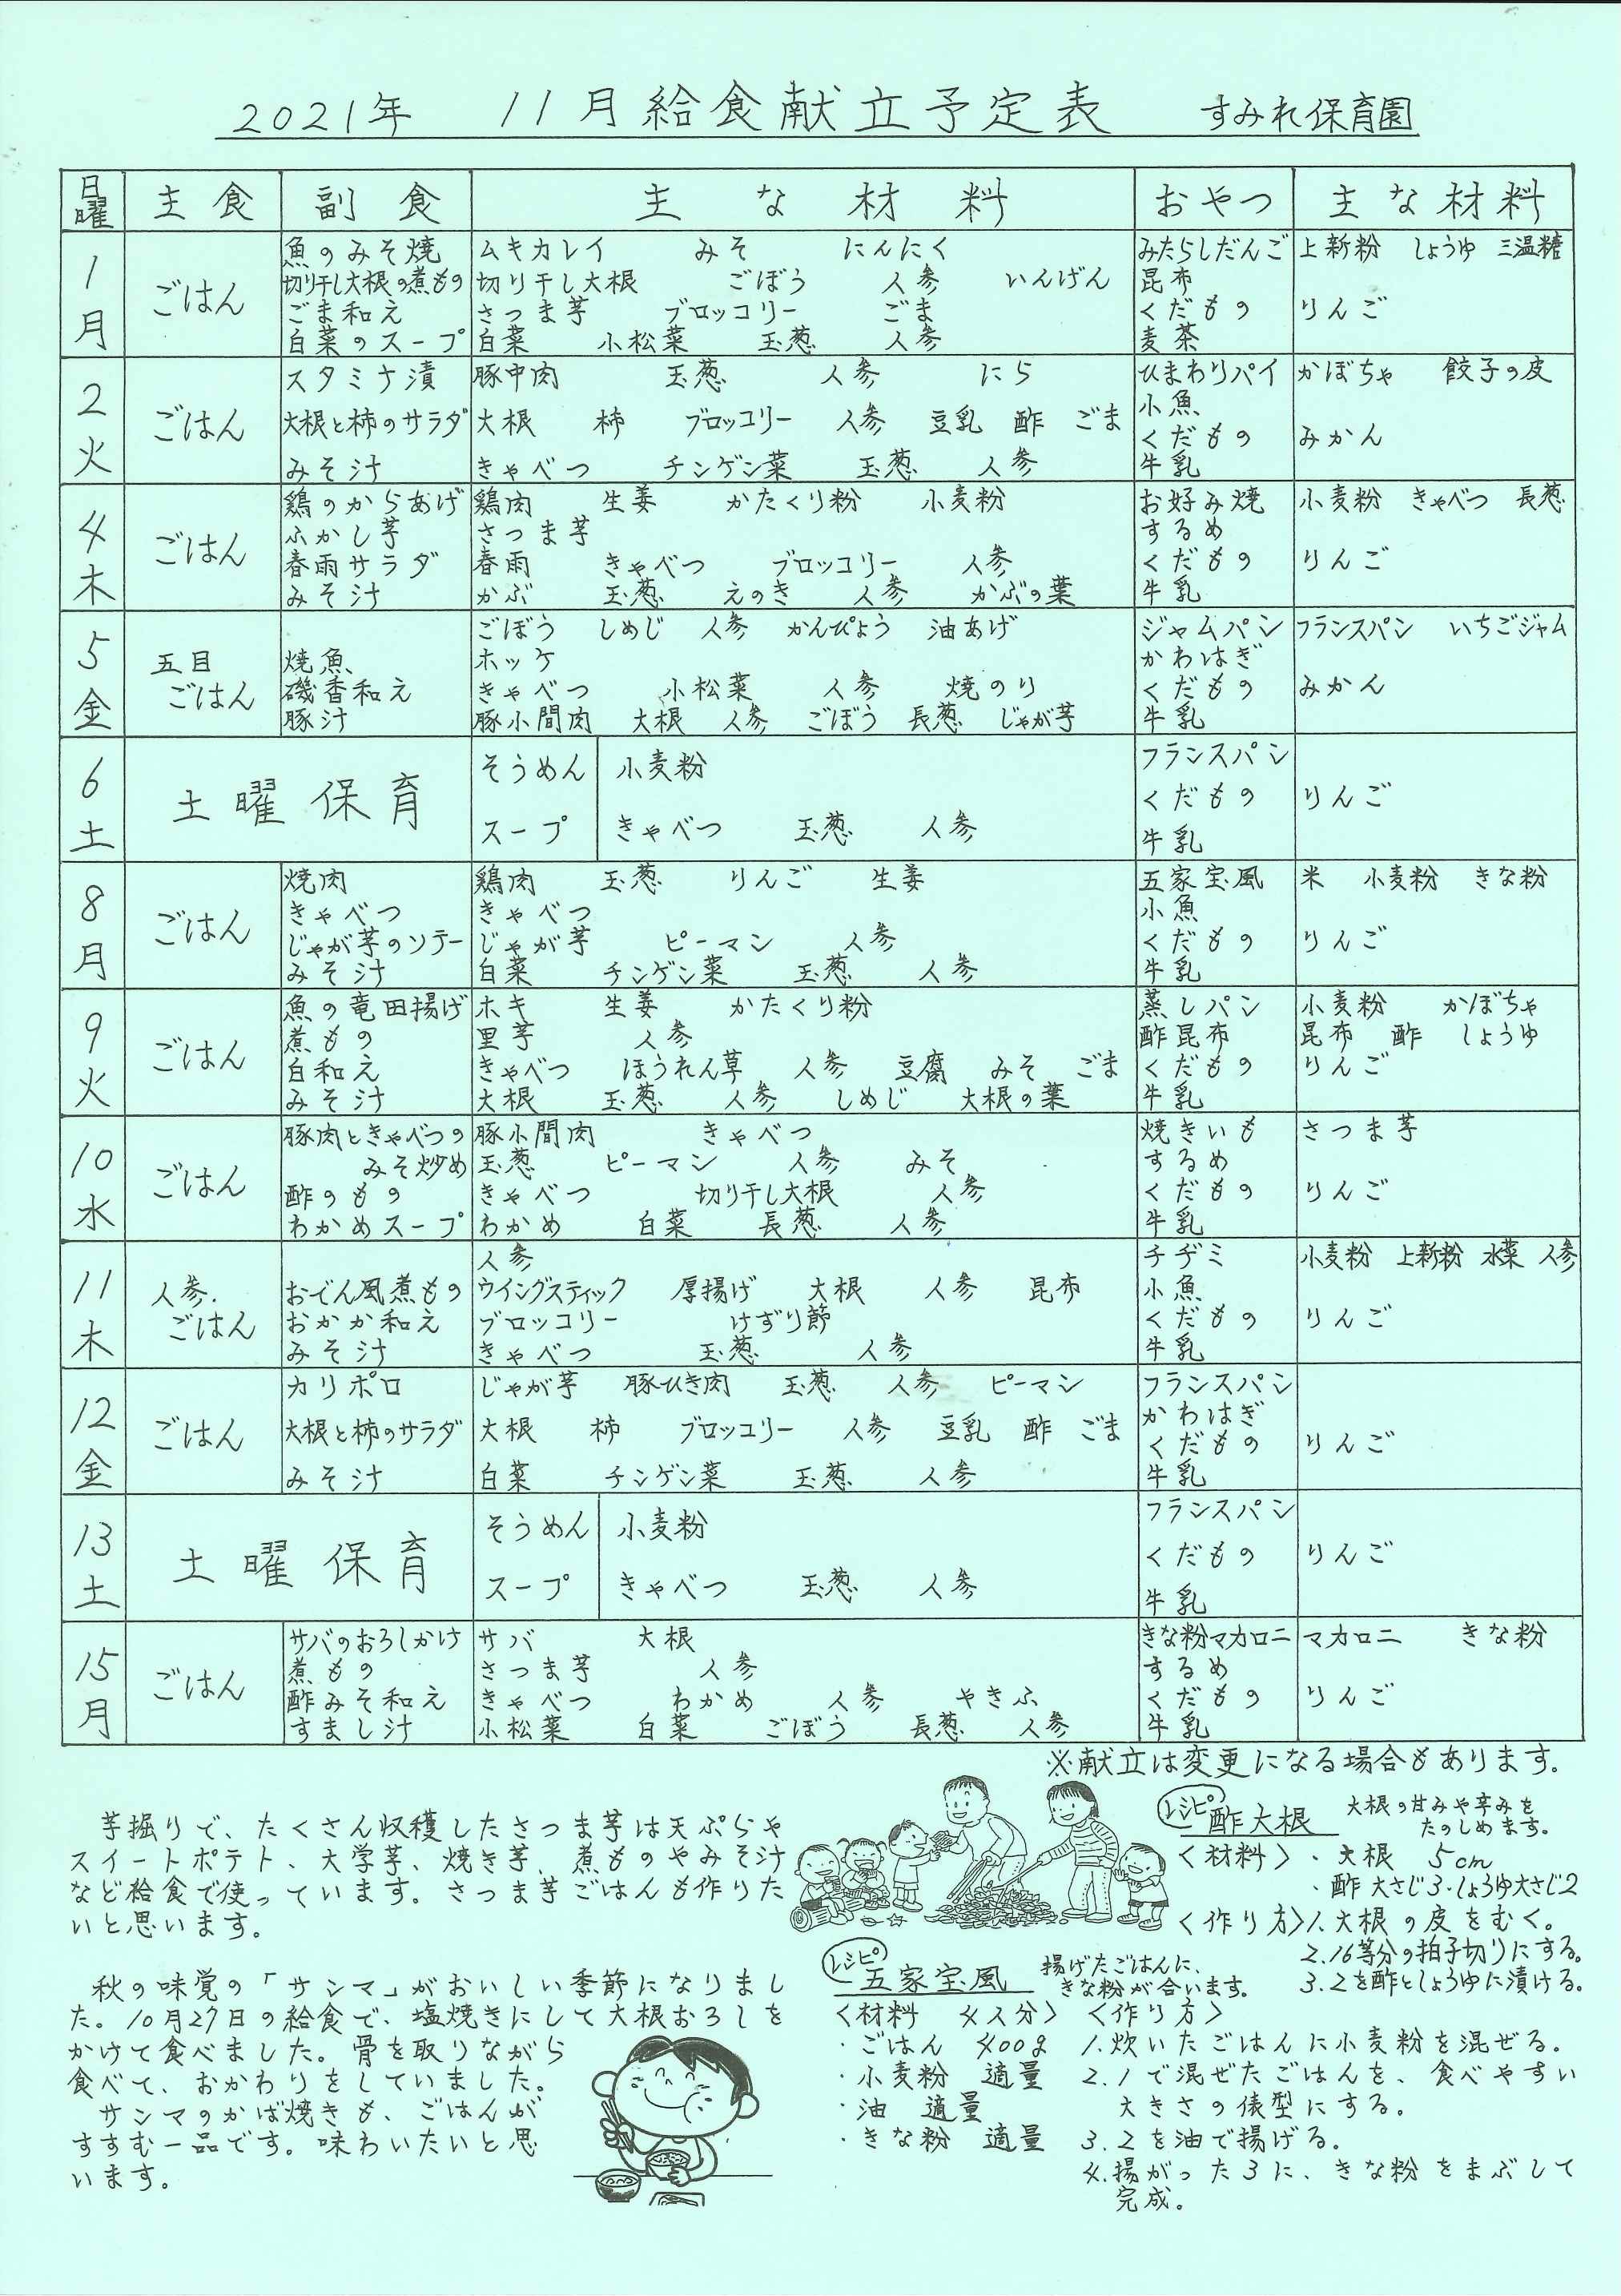 2021年 11月給食献立予定表 すみれ保育園
日曜 主食 副食 主な材料 おやつ 主な材料
1月 ごはん
魚のみそ焼 ムキカレイ みそ にんにく みたらしだんご 上新粉 しょうゆ 三温糖
切り干し大根の煮もの 切り干し大根 ごぼう 人参 いんげん 昆布
ごま和え さつま芋 ブロッコリー ごま くだもの りんご
白菜のスープ 白菜 小松菜 玉葱 人参 麦茶
2火 ごはん
スタミナ漬 豚中肉 玉葱 人参 にら ひまわりパイ かぼちゃ 餃子の皮
小魚
大根と柿のサラダ 大根 柿 ブロッコリー 人参 豆乳 酢 ごま くだもの みかん
みそ汁 きゃべつ チンゲン菜 玉葱 人参 牛乳
4木 ごはん
鶏のからあげ 鶏肉 生姜 かたくり粉 小麦粉 お好み焼 小麦粉 きゃべつ 長葱
ふかし芋 さつま芋 するめ
春雨サラダ 春雨 きゃべつ ブロッコリー 人参 くだもの りんご
みそ汁 かぶ 玉葱 えのき 人参 かぶの葉 牛乳
5金 五目ごはん
ごぼう しめじ 人参 かんぴょう 油あげ ジャムパン フランスパン いちごジャム
焼魚 ホッケ かわはぎ
磯香和え きゃべつ 小松菜 人参 焼のり くだもの みかん
豚汁 豚小間肉 大根 人参 ごぼう 長葱 じゃが芋 牛乳
6土 土曜保育
そうめん 小麦粉 フランスパン
くだもの りんご
スープ きゃべつ 玉葱 人参 牛乳
8月 ごはん
焼肉 鶏肉 玉葱 りんご 生姜 五家宝風 米 小麦粉 きな粉
きゃべつ きゃべつ 小魚
じゃが芋のソテー じゃが芋 ピーマン 人参 くだもの りんご
みそ汁 白菜 チンゲン菜 玉葱 人参 牛乳
9火 ごはん
魚の竜田揚げ ホキ 生姜 かたくり粉 蒸しパン 小麦粉 かぼちゃ
煮もの 里芋 人参 酢昆布 昆布 酢 しょうゆ
白和え きゃべつ ほうれん草 人参 豆腐 みそ ごま くだもの りんご
みそ汁 大根 玉葱 人参 しめじ 大根の葉 牛乳
10水 ごはん
豚肉ときゃべつの 豚小間肉 きゃべつ 焼きいも さつま芋
みそ炒め 玉葱 ピーマン 人参 みそ するめ
酢のもの きゃべつ 切り干し大根 人参 くだもの りんご
わかめスープ わかめ 白菜 長葱 人参 牛乳
11木 人参.ごはん
人参 チヂミ 小麦粉 上新粉 水菜 人参
おでん風煮もの ウイングスティック 厚揚げ 大根 人参 昆布 小魚
おかか和え ブロッコリー けずり節 くだもの りんご
みそ汁 きゃべつ 玉葱 人参 牛乳
12金 ごはん
カリポロ じゃが芋 豚ひき肉 玉葱 人参 ピーマン フランスパン
かわはぎ
大根と柿のサラダ 大根 柿 ブロッコリー 人参 豆乳 酢 ごま くだもの りんご
みそ汁 白菜 チンゲン菜 玉葱 人参 牛乳
13土 土曜保育
そうめん 小麦粉 フランスパン
くだもの りんご
スープ きゃべつ 玉葱 人参 牛乳
15月 ごはん
サバのおろしかけ サバ 大根 きな粉マカロニ マカロニ きな粉
煮もの さつま芋 人参 するめ
酢みそ和え きゃべつ わかめ 人参 やきふ くだもの りんご
すまし汁 小松菜 白菜 ごぼう 長葱 人参 牛乳
※献立は変更になる場合もあります。
芋掘りで、たくさん収穫したさつま芋は天ぷらや
スイートポテト、大学芋、焼き芋、煮ものやみそ汁
など給食で使っています。さつま芋ごはんも作りた
いと思います。
秋の味覚の「サンマ」がおいしい季節になりまし
た。10月27日の給食で、塩焼きにして大根おろしを
かけて食べました。骨を取りながら
食べて、おかわりをしていました。
サンマのかば焼きも、ごはんが
すすむ一品です。味わいたいと思
います。
レシピ 酢大根 大根の甘みや辛みを
たのしめます。
<材料>・大根 5cm
・酢 大さじ3・しょうゆ大さじ2
<作り方>1.大根の皮をむく。
2.16等分の拍子切りにする。
3.2を酢としょうゆに漬ける。
レシピ 五家宝風 揚げたごはんに、
きな粉が合います。
<材料 4人分> <作り方>
・ごはん 400g 1.炊いたごはんに小麦粉を混ぜる。
・小麦粉 適量 2.1で混ぜたごはんを、食べやすい
・油 適量 大きさの俵型にする。
・きな粉 適量 3.2を油で揚げる。
4.揚がった3に、きな粉をまぶして
完成。